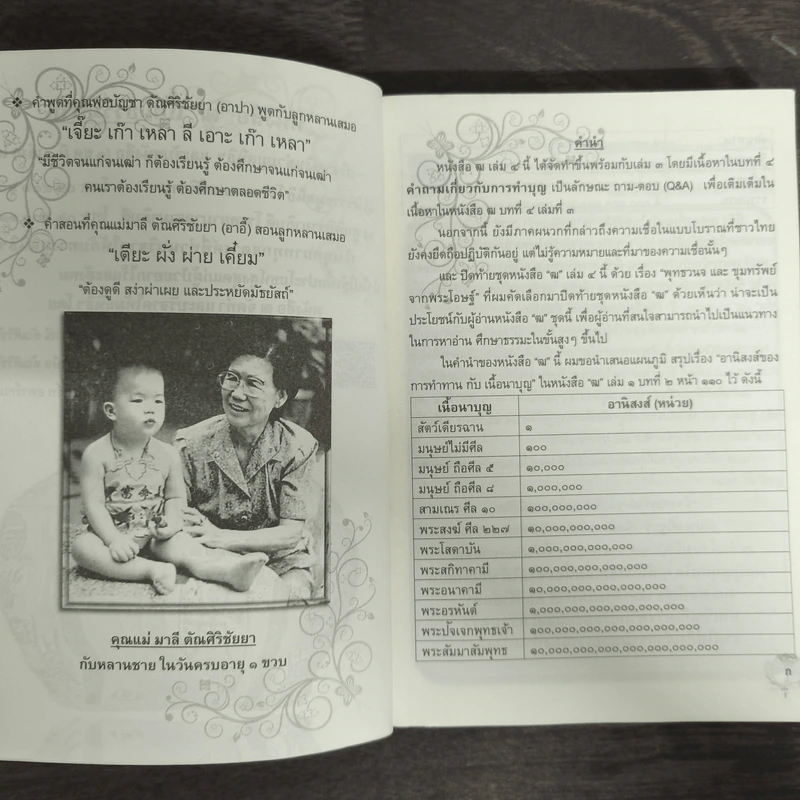 ❖ คำพูดที่คุณพ่อบัญชา ตัณศิริชัยยา (อาปา) พูดกับลูกหลานเสมอ
“เจี๊ยะ เก๊า เหล่า ลี เอาะ เก๊า เหลา”
“มีชีวิตจนแก่จนเฒ่า ก็ต้องเรียนรู้ ต้องศึกษาจนแก่จนเฒ่า
คนเราต้องเรียนรู้ ต้องศึกษาตลอดชีวิต”
❖ คำสอนที่คุณแม่มาลี ตัณศิริชัยยา (อาอี๊) สอนลูกหลานเสมอ
“เตียะ ผั่ง ผ่าย เคี่ยม”
“ต้องดูดี สง่าผ่าเผย และประหยัดมัธยัสถ์”
คุณแม่ มาลี ตัณศิริชัยยา
กับหลานชาย ในวันครบอายุ ๑ ขวบ
คำนำ
หนังสือ ฒ เล่ม ๔ นี้ ได้จัดทำขึ้นพร้อมกับเล่ม ๓ โดยมีเนื้อหาในบทที่ ๔
คำถามเกี่ยวกับการทำบุญ เป็นลักษณะ ถาม-ตอบ (Q&A) เพื่อเติมเต็มใน
เนื้อหาในหนังสือ ฒ บทที่ ๔ เล่มที่ ๓
นอกจากนี้ ยังมีภาคผนวกที่กล่าวถึงความเชื่อในแบบโบราณที่ชาวไทย
ยังคงยึดถือปฏิบัติกันอยู่ แต่ไม่รู้ความหมายและที่มาของความเชื่อนั้นๆ
และ ปิดท้ายชุดหนังสือ “ฒ” เล่ม ๔ นี้ ด้วย เรื่อง “พุทธวจน และ ขุมทรัพย์
จากพระโอษฐ์” ที่ผมคัดเลือกมาปิดท้ายชุดหนังสือ “ฒ” ด้วยเห็นว่า น่าจะเป็น
ประโยชน์กับผู้อ่านหนังสือ “ฒ” ชุดนี้ เพื่อผู้อ่านที่สนใจสามารถนำไปเป็นแนวทาง
ในการหาอ่าน ศึกษาธรรมะในขั้นสูงๆ ขึ้นไป
ในคำนำของหนังสือ “ฒ” นี้ ผมขอนำเสนอแผนภูมิ สรุปเรื่อง “อานิสงส์ของ
การทำทาน กับ เนื้อนาบุญ” ในหนังสือ “ฒ” เล่ม ๑ บทที่ ๒ หน้า ๑๑๐ ไว้ ดังนี้
เนื้อนาบุญ อานิสงส์ (หน่วย)
สัตว์เดียรฉาน ๑
มนุษย์ไม่มีศีล ๑๐๐
มนุษย์ ถือศีล ๕ ๑๐,๐๐๐
มนุษย์ ถือศีล ๘ ๑,๐๐๐,๐๐๐
สามเณร ศีล ๑๐ ๑๐๐,๐๐๐,๐๐๐
พระสงฆ์ ศีล ๒๒๗ ๑๐,๐๐๐,๐๐๐,๐๐๐
พระโสดาบัน ๑,๐๐๐,๐๐๐,๐๐๐,๐๐๐
พระสกิทาคามี ๑๐๐,๐๐๐,๐๐๐,๐๐๐,๐๐๐
พระอนาคามี ๑๐,๐๐๐,๐๐๐,๐๐๐,๐๐๐,๐๐๐
พระอรหันต์ ๑,๐๐๐,๐๐๐,๐๐๐,๐๐๐,๐๐๐,๐๐๐
พระปัจเจกพุทธเจ้า ๑๐๐,๐๐๐,๐๐๐,๐๐๐,๐๐๐,๐๐๐,๐๐๐
พระสัมมาสัมพุทธ ๑๐,๐๐๐,๐๐๐,๐๐๐,๐๐๐,๐๐๐,๐๐๐,๐๐๐
ก